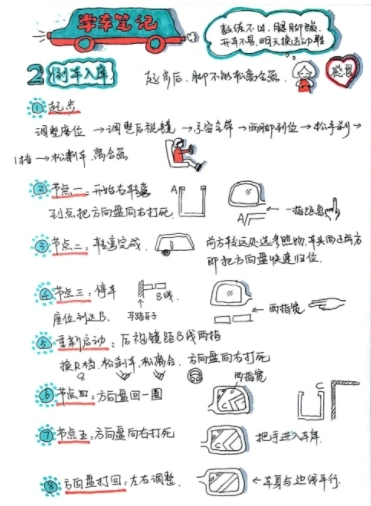 学车笔记
教练不凶,腿脚哆嗦
开车不易,明天换运动鞋
2 倒车入库
起步后,脚不能松离合器.
感恩
① 起步
调整座位→调整后视镜→系安全带→两脚到位→松手刹→
1挡→松刹车,离合器
② 节点一:开始右转弯
到点把方向盘向右打死.
A
A
←一指距离
③ 节点二:转弯完成.
前方较远处选参照物,车头回正前方
即把方向盘快速归位.
④ 节点三:停车
B线.
座位到达B.
←两指宽
⑤ 重新启动:后视镜距B线两指
换R档,松刹车,松离合.方向盘向右打死
⑥ 节点四:方向盘回一圈
两指宽
C
⑦ 节点五:方向盘向右打死
C
把手进入车库.
⑧ 方向盘打回:左右调整.
←车身与边线平行.